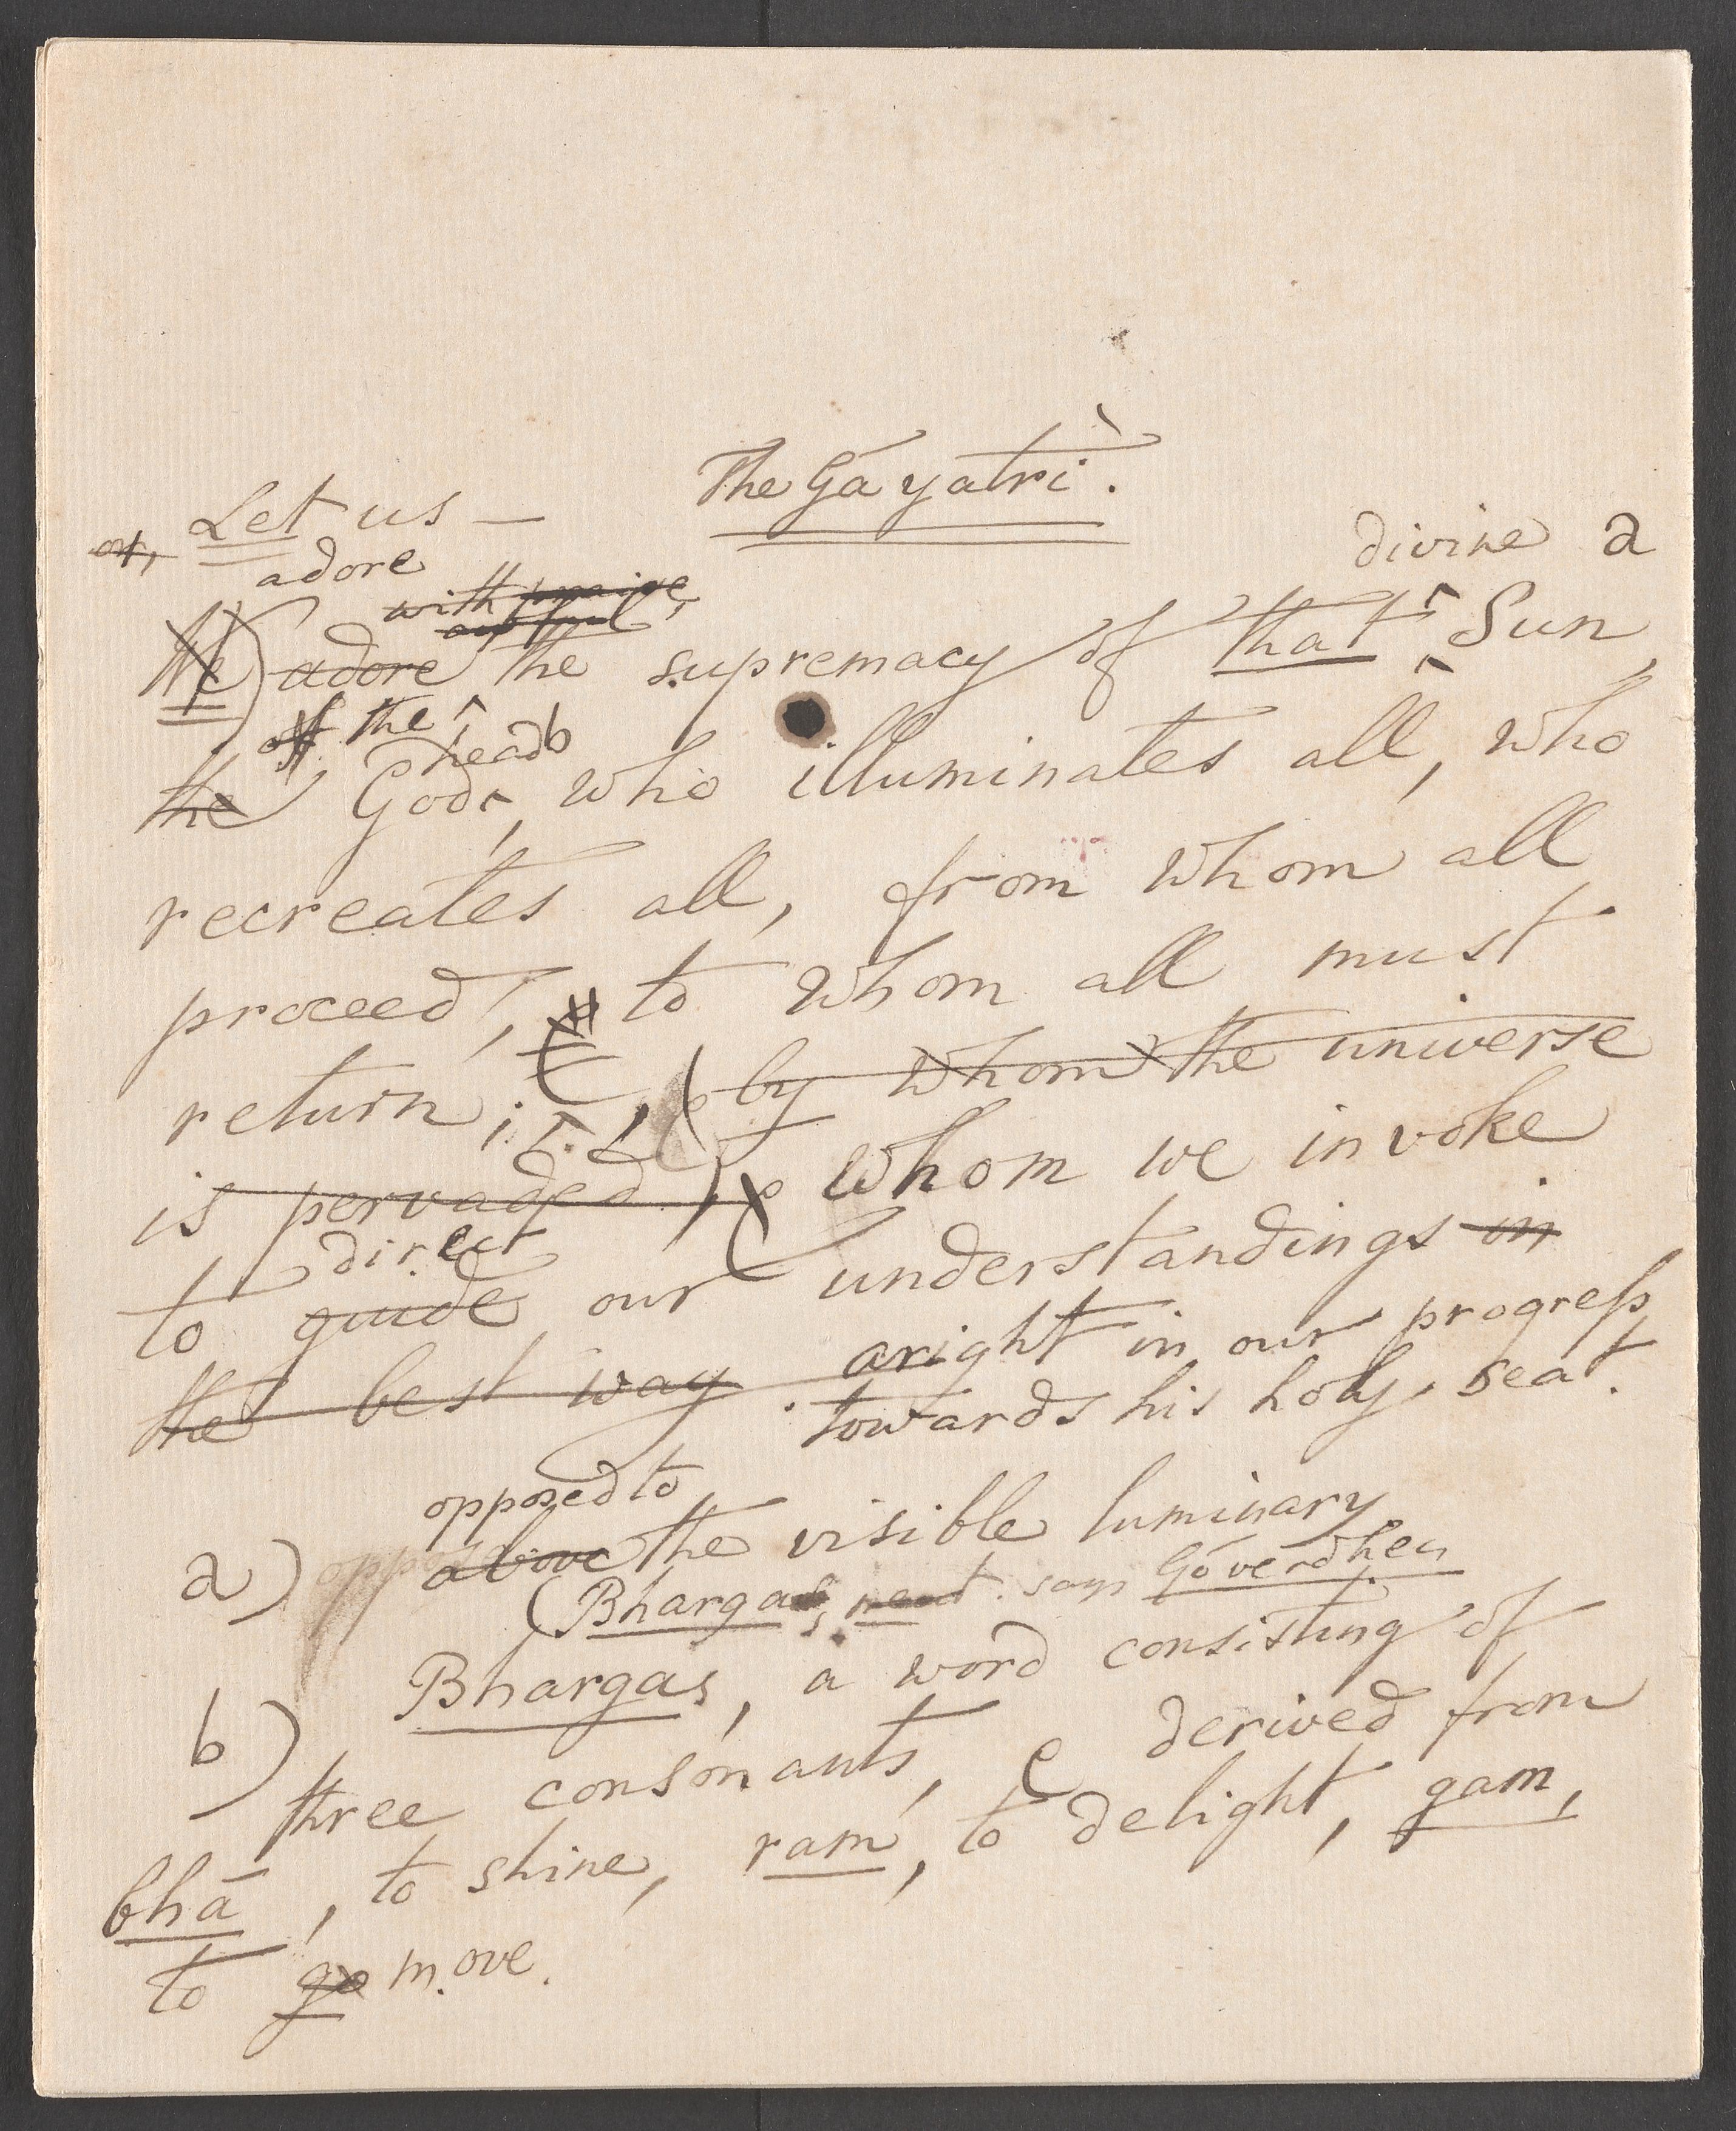 The Gáyatrì.
or, Let us —
adore divine a
with praise,
We adore the supremacy of that Sun,
of the head b
the God, who illuminates all, who
recreates all, from whom all
proceed, to whom all must
return; by whom the universe
is pervaded, whom we invoke
direct
to guide our understandings in
the best way aright in our progress
towards his holy seat.
opposed to
a) above the visible luminary
(Bhargas, neut. says Góverdhen
b) Bhargas, a word consisting of
three consonants, derived from
bhá, to shine, ram, to delight, gam,
to go move.